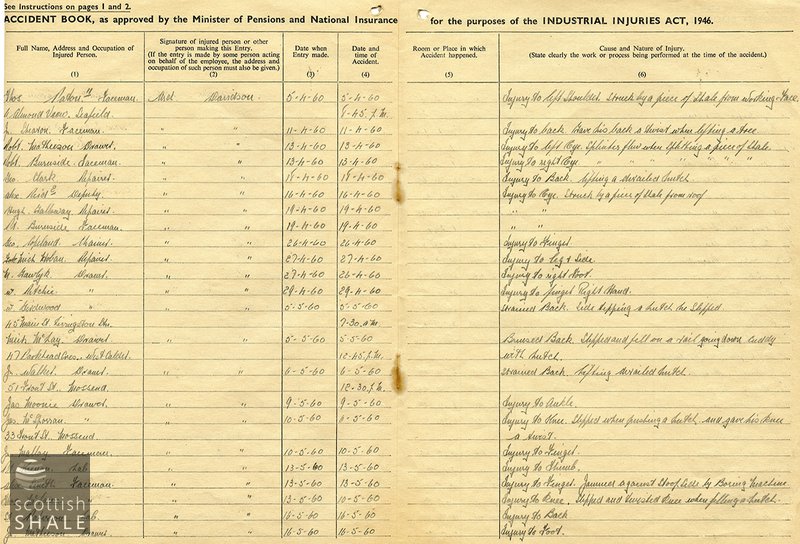 See Instructions on pages 1 and 2.
ACCIDENT BOOK, as approved by the Minister of Pensions and National Insurance for the purposes of the INDUSTRIAL INJURIES ACT, 1946.
Full Name, Address and Occupation of Injured Person. (1)
Signature of injured person or other person making this Entry. (If the entry is made by some person acting on behalf of the employee, the address and occupation of such person must also be given.) (2)
Date when Entry made. (3)
Date and time of Accident. (4)
Room or Place in which Accident happened. (5)
Cause and Nature of Injury. (State clearly the work or process being performed at the time of the accident.) (6)
Thos Faceman. Davidson 5-4-60 5-4-60 Injury to left Shoulder. Struck by a piece of Shale from working-Face.
Almond View. Seafield 8-45 p.m.
Faceman. " " 11-4-60 11-4-60 Injury to back. Gave his back a twist when lifting a tree.
Robt. Matheson Drawer. " " 13-4-60 13-4-60 Injury to left Eye. Splinter flew when splitting a piece of shale.
Robt. Burnside Faceman. " " 13-4-60 13-4-60 Injury to right Eye. " " " " " " "
Geo. Clark Repairer. " " 18-4-60 18-4-60 Injury to Back. Lifting a derailed hutch.
Alex Reid Deputy " " 16-4-60 16-4-60 Injury to Eye. Struck by a piece of shale from roof
Hugh Galloway Repairer. " " 19-4-60 19-4-60 " "
Burnside Faceman. " " 19-4-60 19-4-60 " "
Geo. Copeland " " 26-4-60 26-4-60 Injury to Finger.
Hoban. Repairer. " " 27-4-60 27-4-60 Injury to Leg & Side.
Drawer. " " 27-4-60 26-4-60 Injury to right Foot.
W. Ritchie " " " 29-4-60 29-4-60 Injury to Finger Right Hand.
W. Girdwood " " " 5-5-60 5-5-60 Strained Back. tipping a hutch he slipped.
45 Main St. Livingston Stn. 7-30 a.m.
Mick McLay. Drawer " " 5-5-60 5-5-60 Bruised Back. Slipped and fell on a rail going down
47 Parkhead Cres., West Calder. 12-45 p.m. with hutch.
Jn. Walker Drawer. " " 6-5-60 6-5-60 Strained Back. Lifting derailed hutch.
51 Front St. Mossend 12-30 p.m.
Jas Moonie Drawer. " " 9-5-60 9-5-60 Injury to Ankle
Jas. McSporran " " 10-5-60 Injury to Knee. Slipped when pushing a hutch and gave his knee
33 Front St. Mossend a twist.
Faceman. " " 10-5-60 10-5-60 Injury to Finger.
Lab " " 13-5-60 13-5-60 Injury to Thumb.
Smith Faceman " " 13-5-60 13-5-60 Injury to Finger. Jammed against Stoop Side by Boring Machine
" " 13-5-60 10-5-60 Injury to Knee. Slipped and twisted knee when filling a hutch.
Lab. " " 16-5-60 13-5-60 Injury to Back
Drawer. " " 16-5-60 16-5-60 Injury to Foot.
scottish
SHALE